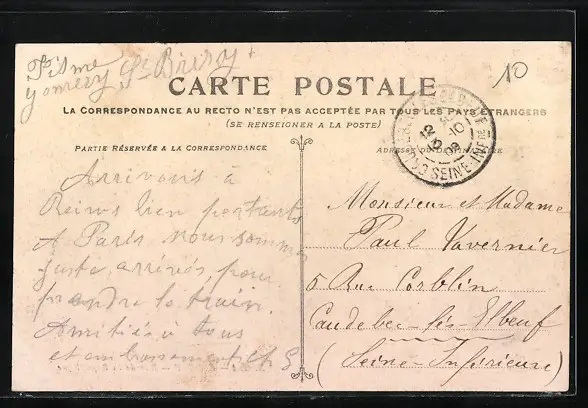 CARTE POSTALE
LA CORRESPONDANCE AU RECTO N'EST PAS ACCEPTÉE PAR TOUS LES PAYS ÉTRANGERS
(SE RENSEIGNER A LA POSTE)
PARTIE RÉSERVÉE A LA CORRESPONDANCE
10
SEINE-INFRE
Arrivons à
Reims bien portants
A Paris nous sommes
juste arrivés pour
prendre le train.
Amitiés à tous
et embrassement
Monsieur et Madame
Paul Vavernier
5 Rue Corblin
Caudebec-lès-Elbeuf
(Seine-Inférieure)